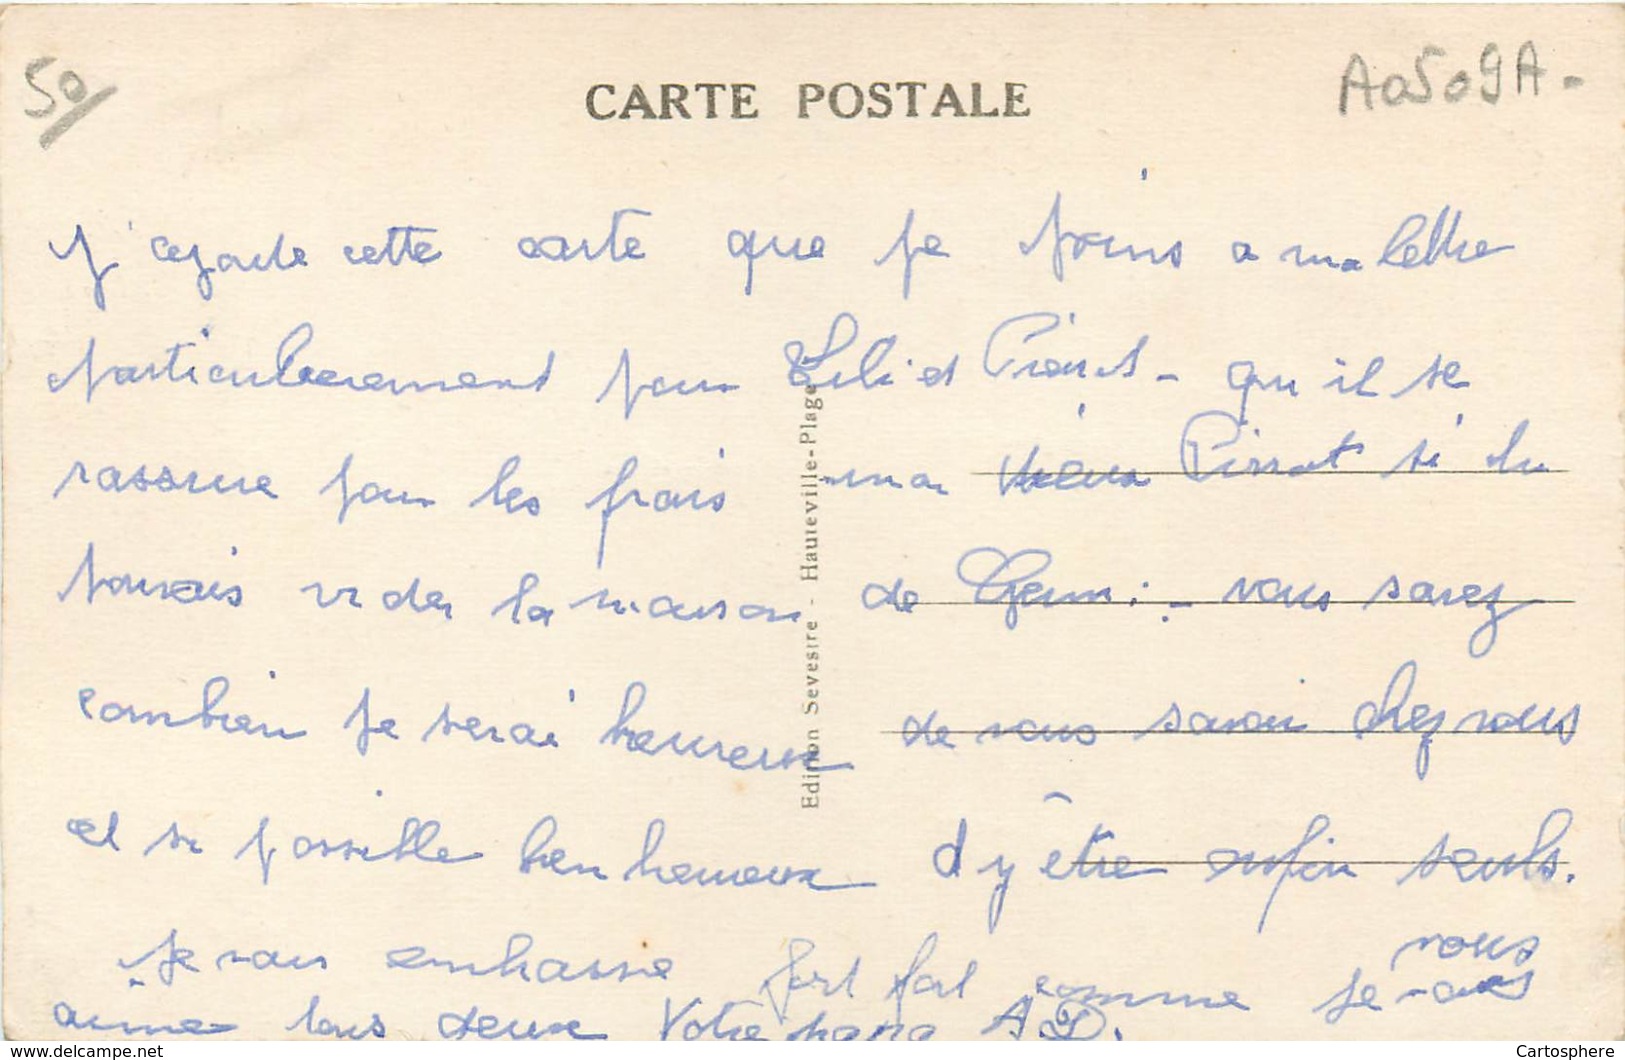 50/
CARTE POSTALE
A0509A-
J'ajoute cette carte que je joins a ma lettre
particulièrement pour Lili et Pierrot - qu'il se
rassure pour les frais mon vieux Pierrot si tu
pouvais vider la maison de - vous savez
combien je serai heureux de vous savoir chez vous
et si possible bien heureux d'y être enfin seuls.
Je vous embrasse fort fort comme je vous
aime tous deux Votre papa A.D.
Edition Sevestre - Hauteville-Plage
Cartosphere